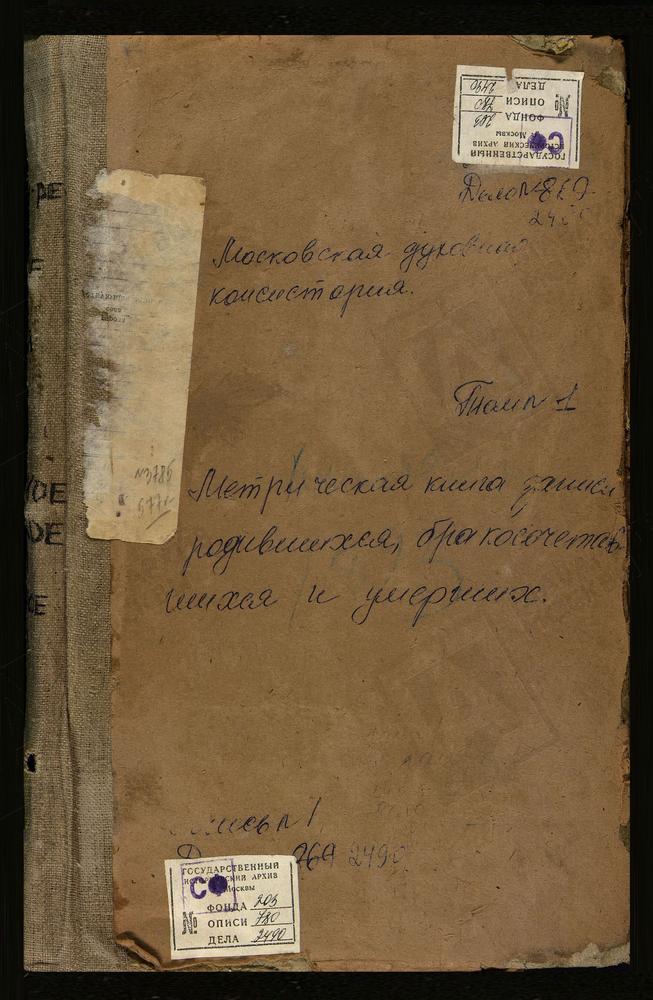 ГОСУДАРСТВЕННЫЙ
ИСТОРИЧЕСКИЙ АРХИВ
г. Москвы
СФ
№
ФОНДА 203
ОПИСИ 780
ДЕЛА 2490
Дело №
Московская духовная
консистория.
Том № 1
Метрическая книга записи
родившихся, бракосочетав
шихся и умерших.
№3785
№ 1
769 2490
ГОСУДАРСТВЕННЫЙ
ИСТОРИЧЕСКИЙ АРХИВ
г. Москвы
СФ
№
ФОНДА 203
ОПИСИ 780
ДЕЛА 2490